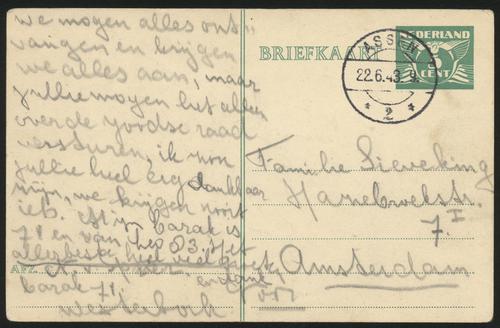 we mogen alles ont"
vangen en krijgen
we alles aan, maar
jullie mogen het alleen
over de Joodse raad
versturen, ik zou
jullie heel erg dankbaar
zijn, we krijgen nooit
iets. Mijn barak is
71 en van Theo 83. Het
allerbeste heel veel
Barak 71.
Westerbork
AFZ.
BRIEFKAART
NEDERLAND
5
CENT
ASSEN
22.6.43
2
Familie Sieveking
Hanebroekstr.
7 I
Amsterdam